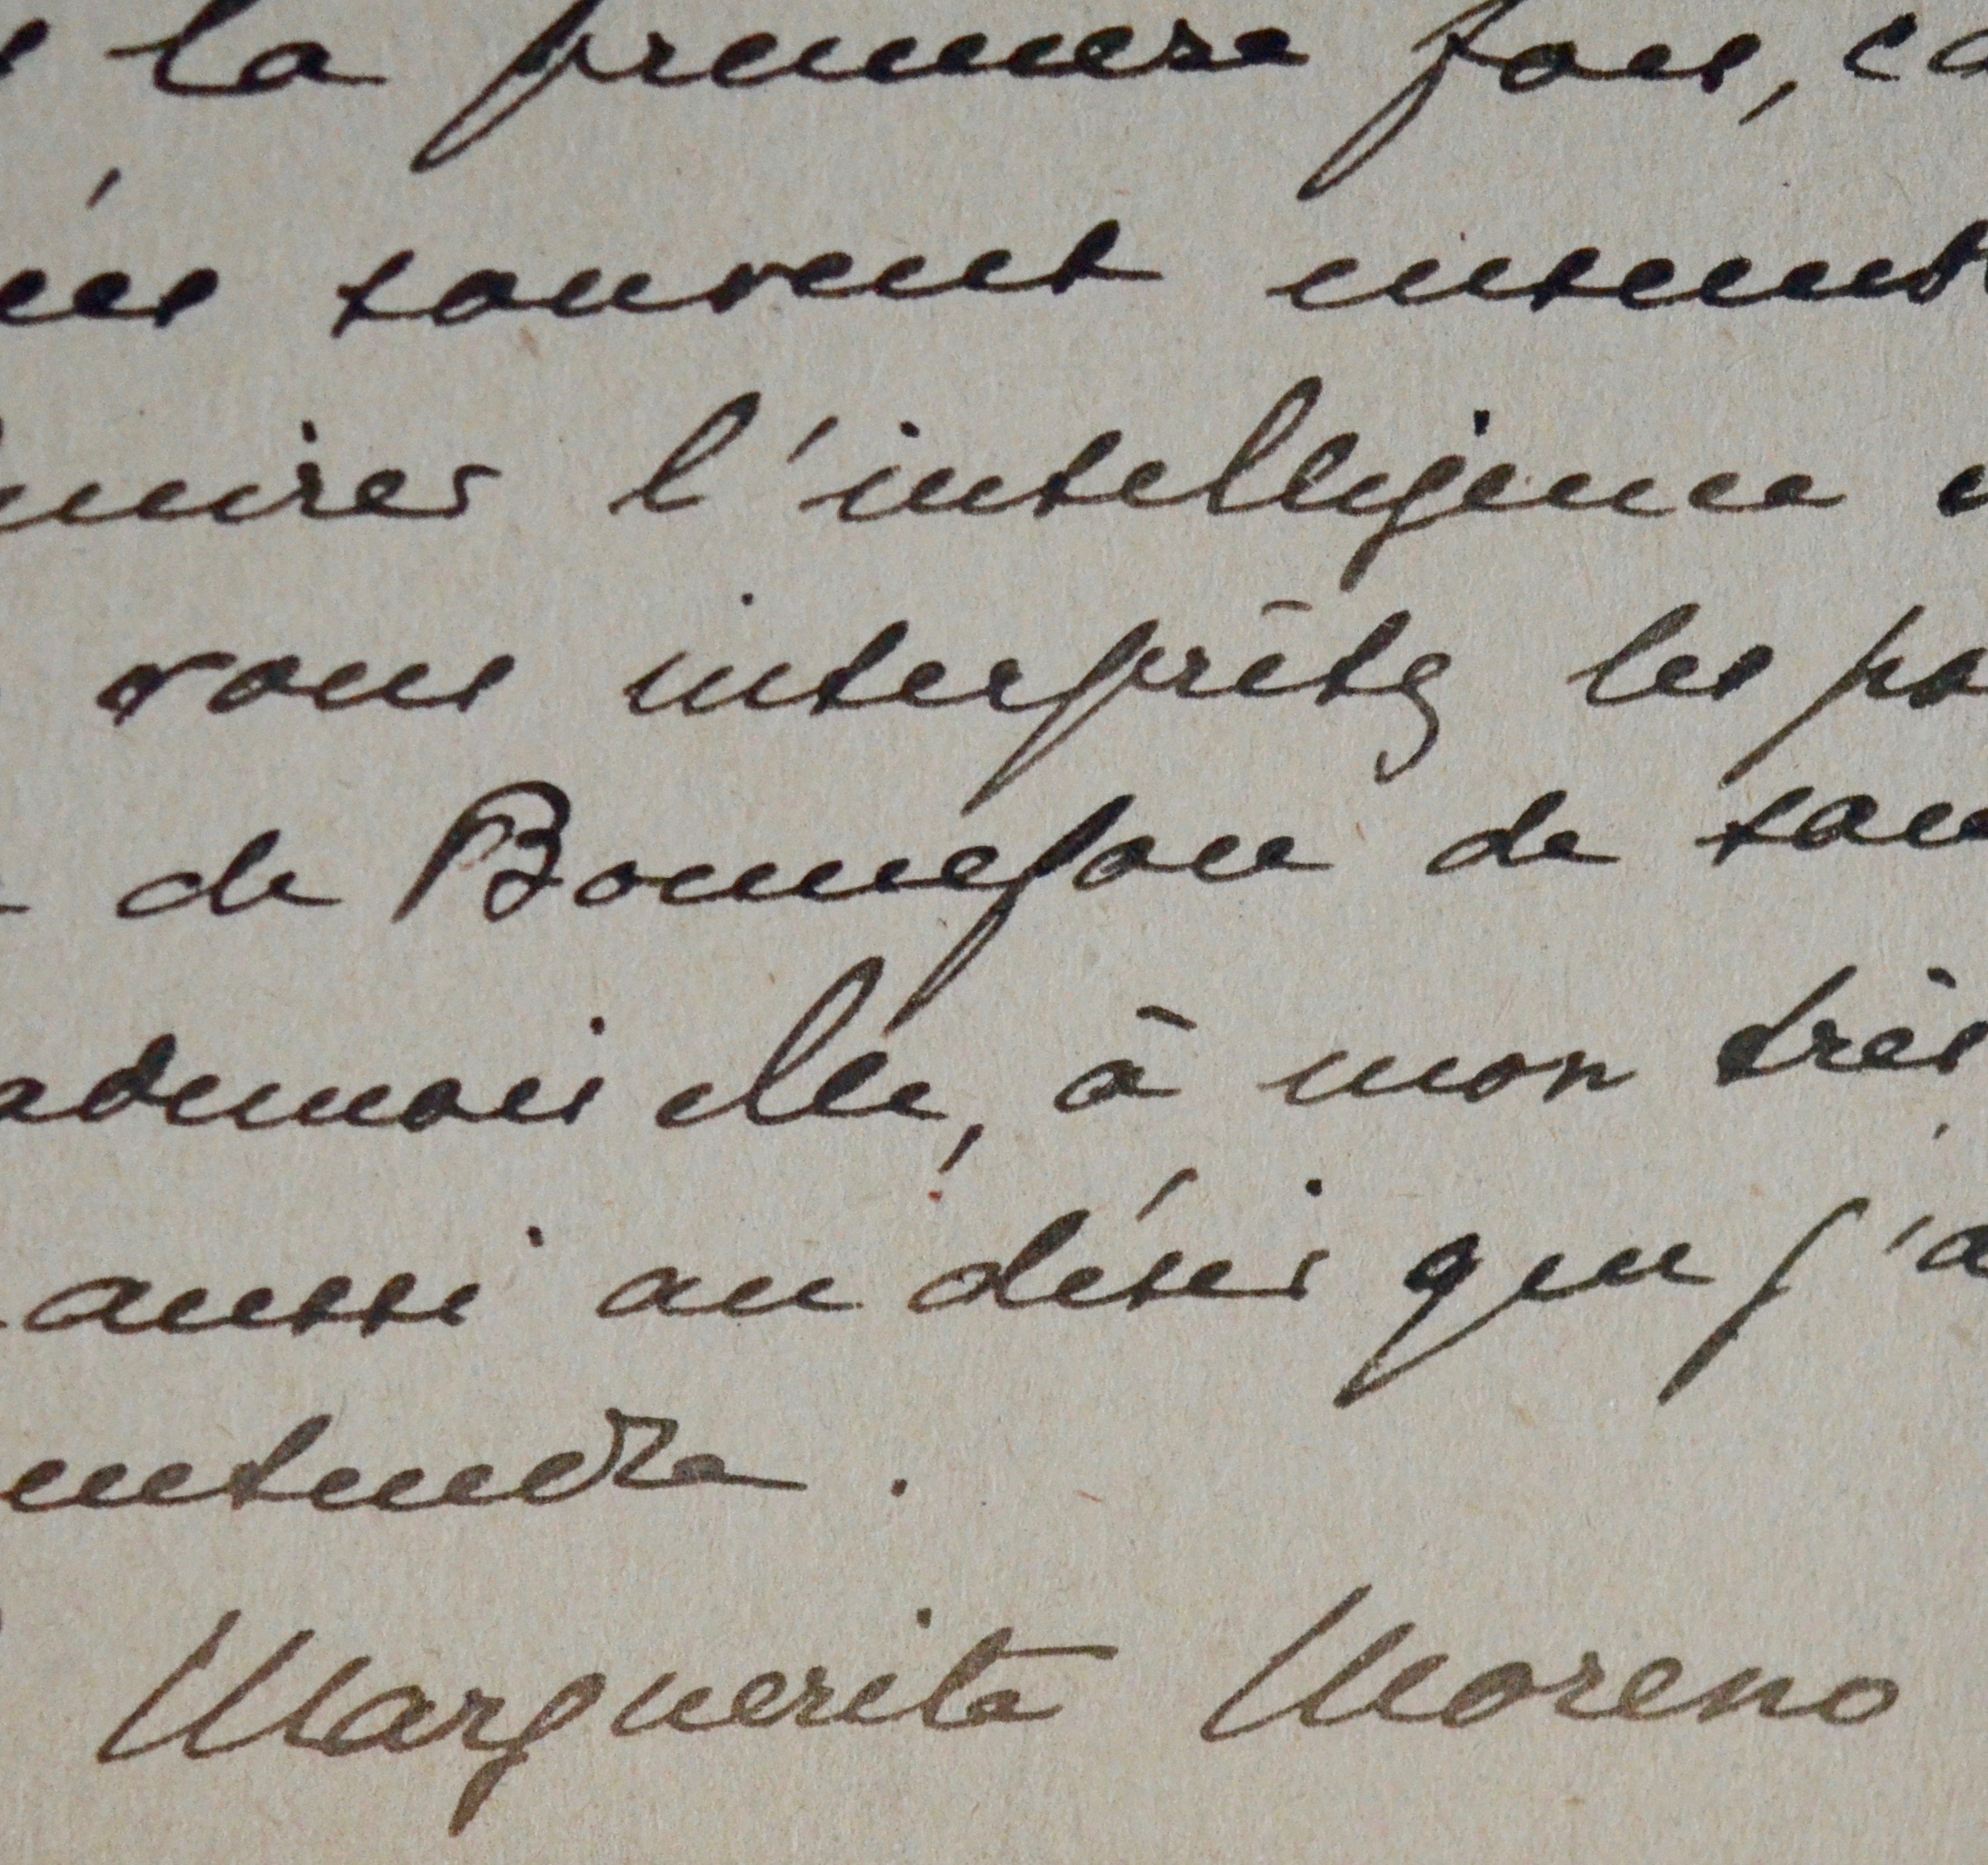 la première fois, ca
souvent ensemb
mirer l'intelligence
vous interprêtez les po
de Bonnefon de sou
ademoiselle, à mon très
aussi au désir que j'a
entendre.
Marguerite Moreno